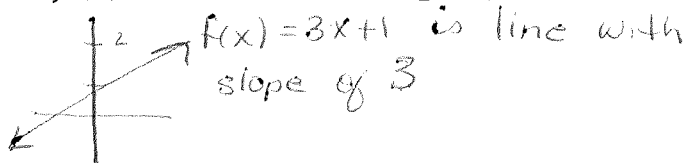 2 f(x) = 3x+1 is line with
slope of 3